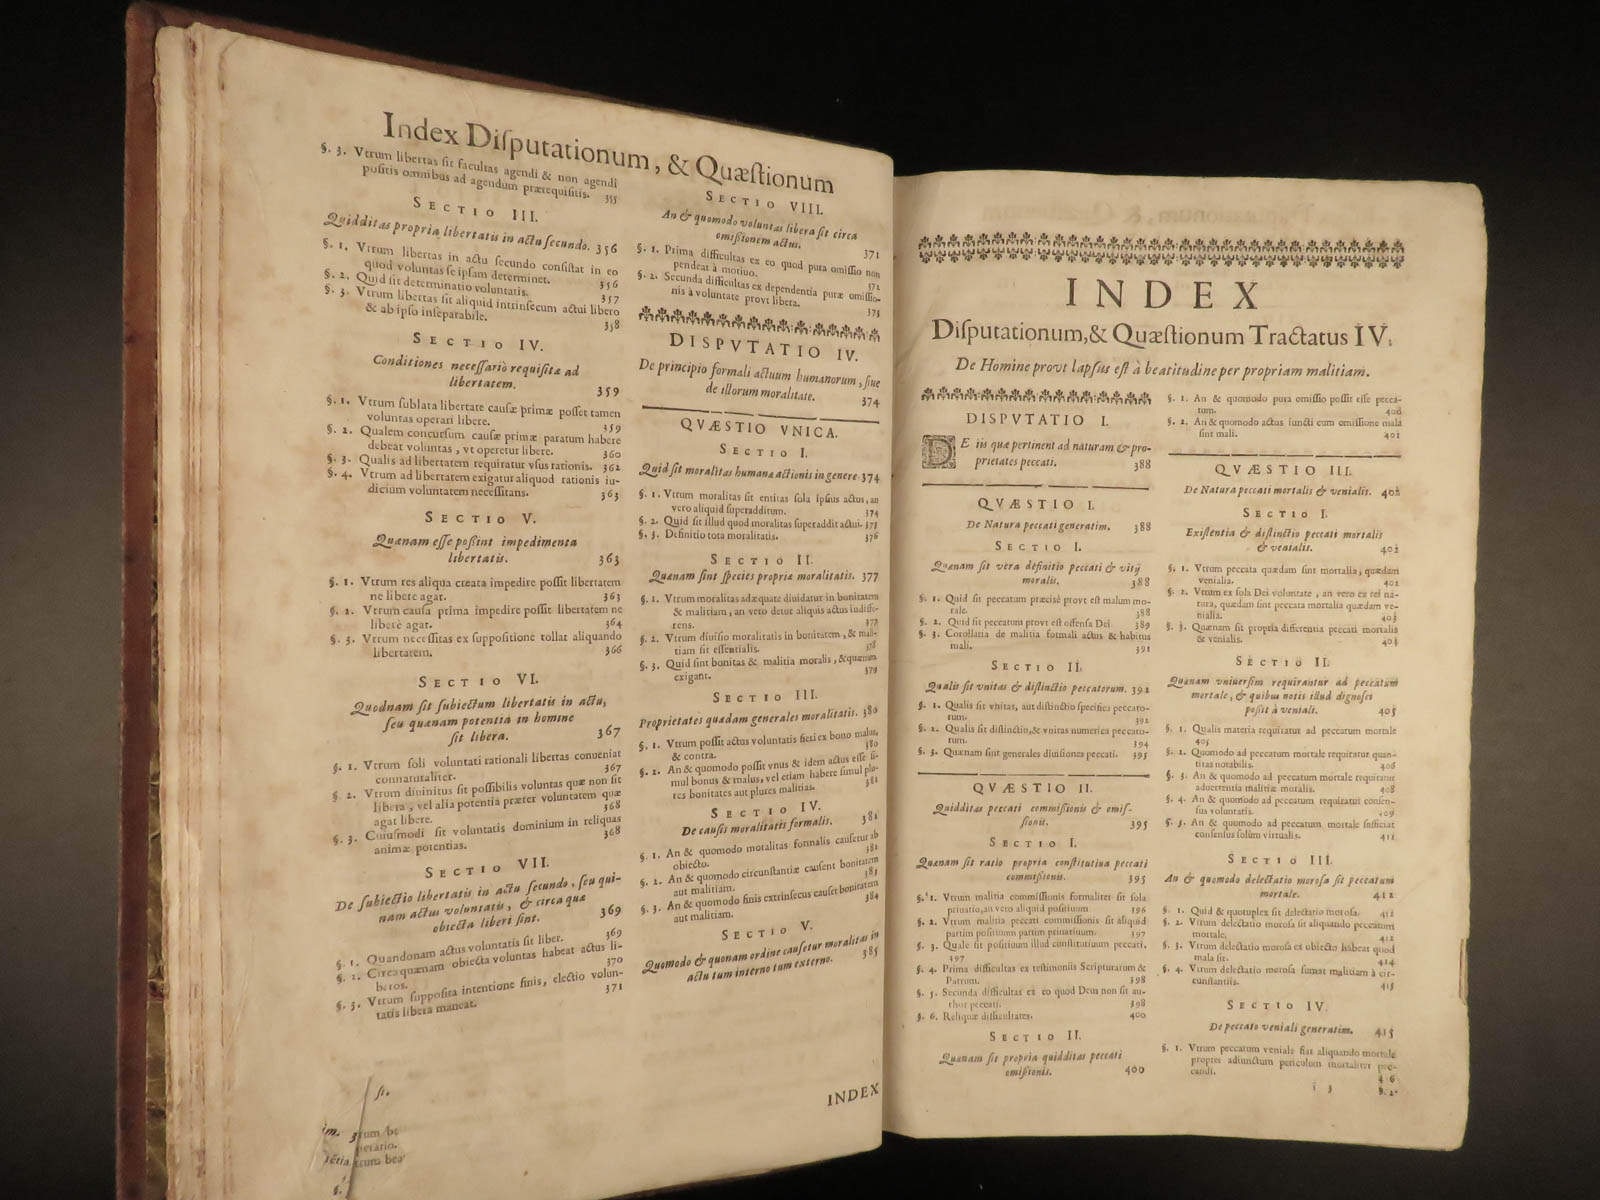 Index Diſputationum, & Quæſtionum
§. 3. Vtrum libertas ſit facultas agendi & non agendi
poſitis omnibus ad agendum prærequiſitis. 355
SECTIO III.
Quidditas propria libertatis in actu ſecundo. 356
§. 1. Vtrum libertas in actu ſecundo conſiſtat in eo
quod voluntas ſe ipſam determinet. 356
§. 2. Quid ſit determinatio voluntatis. 357
§. 3. Vtrum libertas ſit aliquid intrinſecum actui libero
& ab ipſo inſeparabile. 358
SECTIO IV.
Conditiones neceſſariò requiſitæ ad
libertatem. 359
§. 1. Vtrum ſublata libertate cauſæ primæ poſſet tamen
voluntas operari libere. 359
§. 2. Qualem concurſum cauſæ primæ paratum habere
debeat voluntas, vt operetur libere. 360
§. 3. Qualis ad libertatem requiratur vſus rationis. 362
§. 4. Vtrum ad libertatem exigatur aliquod rationis iu-
dicium voluntatem neceſſitans. 363
SECTIO V.
Quænam eſſe poßint impedimenta
libertatis. 363
§. 1. Vtrum res aliqua creata impedire poſſit libertatem
ne libere agat. 363
§. 2. Vtrum cauſa prima impedire poſſit libertatem ne
liberè agat. 364
§. 3. Vtrum neceſſitas ex ſuppoſitione tollat aliquando
libertatem. 366
SECTIO VI.
Quodnam ſit ſubiectum libertatis in actu,
ſeu quænam potentia in homine
ſit libera. 367
§. 1. Vtrum ſoli voluntati rationali libertas conueniat
connaturaliter. 367
§. 2. Vtrum diuinitus ſit poſſibilis voluntas quæ non ſit
libera, vel alia potentia præter voluntatem quæ
agat libere. 368
§. 3. Cuiuſmodi ſit voluntatis dominium in reliquas
animæ potentias. 368
SECTIO VII.
De ſubiectio libertatis in actu ſecundo, ſeu qui-
nam actus voluntatis, & circa quæ
obiecta liberi ſint. 369
§. 1. Quandonam actus voluntatis ſit liber. 369
§. 2. Circa quænam obiecta voluntas habeat actus li-
beros. 370
§. 3. Vtrum ſuppoſita intentione finis, electio volun-
tatis libera maneat. 371
SECTIO VIII.
An & quomodo voluntas libera ſit circa
omißionem actus. 371
§. 1. Prima difficultas ex eo quod pura omiſſio non
pendeat à motiuo. 372
§. 2. Secunda difficultas ex dependentia puræ omiſſio-
nis à voluntate provt libera. 373
DISPVTATIO IV.
De principio formali actuum humanorum, ſiue
de illorum moralitate. 374
QVÆSTIO VNICA.
SECTIO I.
Quid ſit moralitas humanæ actionis in genere 374
§. 1. Vtrum moralitas ſit entitas ſola ipſius actus, an
vero aliquid ſuperadditum. 374
§. 2. Quid ſit illud quod moralitas ſuperaddit actui. 375
§. 3. Definitio tota moralitatis. 376
SECTIO II.
Quænam ſint ſpecies propriæ moralitatis. 377
§. 1. Vtrum moralitas adæquate diuidatur in bonitatem
& malitiam, an vero detur aliquis actus indiffe-
rens. 377
§. 2. Vtrum diuiſio moralitatis in bonitatem, & mali-
tiam ſit eſſentialis. 378
§. 3. Quid ſint bonitas & malitia moralis, & quænam
exigant. 379
SECTIO III.
Proprietates quædam generales moralitatis. 380
§. 1. Vtrum poſſit actus voluntatis fieri ex bono malus,
& contra. 380
§. 2. An & quomodo poſſit vnus & idem actus eſſe ſi-
mul bonus & malus, vel etiam habere ſimul plu-
res bonitates aut plures malitias. 381
SECTIO IV.
De cauſis moralitatis formalis. 381
§. 1. An & quomodo moralitas formalis cauſetur ab
obiecto. 381
§. 2. An & quomodo circumſtantiæ cauſent bonitatem
aut malitiam. 383
§. 3. An & quomodo finis extrinſecus cauſet bonitatem
aut malitiam. 384
SECTIO V.
Quomodo & quonam ordine cauſetur moralitas in
actu tum interno tum externo. 385
INDEX
INDEX
Diſputationum, & Quæſtionum Tractatus IV.
De Homine provt lapſus eſt à beatitudine per propriam malitiam.
DISPVTATIO I.
DE iis quæ pertinent ad naturam & pro-
prietates peccati. 388
QVÆSTIO I.
De Natura peccati generatim. 388
SECTIO I.
Quænam ſit vera definitio peccati & vitij
moralis. 388
§. 1. Quid ſit peccatum præciſè provt eſt malum mo-
rale. 388
§. 2. Quid ſit peccatum provt eſt offenſa Dei. 389
§. 3. Corollaria de malitia formali actus & habitus
mali. 391
SECTIO II.
Qualis ſit vnitas & diſtinctio peccatorum. 392
§. 1. Qualis ſit vnitas, aut diſtinctio ſpecifica peccato-
rum. 392
§. 2. Qualis ſit diſtinctio, & vnitas numerica peccato-
rum. 394
§. 3. Quænam ſint generales diuiſiones peccati. 395
QVÆSTIO II.
Quidditas peccati commißionis & omiſ-
ſionis. 395
SECTIO I.
Quænam ſit ratio propria conſtitutiua peccati
commißionis. 395
§. 1. Vtrum malitia commiſſionis formaliter ſit ſola
priuatio, an vero aliquid poſitiuum 396
§. 2. Vtrum malitia peccati commiſſionis ſit aliquid
partim poſitiuum partim priuatiuum. 397
§. 3. Quale ſit poſitiuum illud conſtitutiuum peccati.
397
§. 4. Prima difficultas ex teſtimoniis Scripturarum &
Patrum. 398
§. 5. Secunda difficultas ex eo quod Deus non ſit au-
thor peccati. 398
§. 6. Reliquæ difficultates. 400
SECTIO II.
Quænam ſit propria quidditas peccati
omißionis. 400
§. 1. An & quomodo pura omiſſio poſſit eſſe pecca-
tum. 400
§. 2. An & quomodo actus iuncti cum omiſſione mala
ſint mali. 401
QVÆSTIO III.
De Natura peccati mortalis & venialis. 402
SECTIO I.
Exiſtentia & diſtinctio peccati mortalis
& venialis. 402
§. 1. Vtrum peccata quædam ſint mortalia, quædam
venialia. 402
§. 2. Vtrum ex ſola Dei voluntate, an vero ex rei na-
tura, quædam ſint peccata mortalia quædam ve-
nialia. 403
§. 3. Quænam ſit propria differentia peccati mortalis
& venialis. 403
SECTIO II.
Quænam vniuerſim requirantur ad peccatum
mortale, & quibus notis illud dignoſci
poßit à veniali. 405
§. 1. Qualis materia requiratur ad peccatum mortale
405
§. 2. Quomodo ad peccatum mortale requiratur quan-
titas notabilis. 406
§. 3. An & quomodo ad peccatum mortale requiratur
aduertentia malitiæ moralis. 408
§. 4. An & quomodo ad peccatum requiratur conſen-
ſus voluntatis. 409
§. 5. An & quomodo ad peccatum mortale ſufficiat
conſenſus ſolùm virtualis. 411
SECTIO III.
An & quomodo delectatio moroſa ſit peccatum
mortale. 412
§. 1. Quid & quotuplex ſit delectatio moroſa. 412
§. 2. Vtrum delectatio moroſa ſit aliquando peccatum
mortale. 412
§. 3. Vtrum delectatio moroſa ex obiecto habeat quod
mala ſit. 414
§. 4. Vtrum delectatio moroſa ſumat malitiam à cir-
cunſtantiis. 415
SECTIO IV.
De peccato veniali generatim. 415
§. 1. Vtrum peccatum veniale fiat aliquando mortale
propter adiunctum periculum mortaliter pec-
candi.
i 3 §. 2.